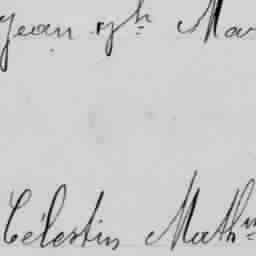 Jean Jph Mar
Célestin Mathieu